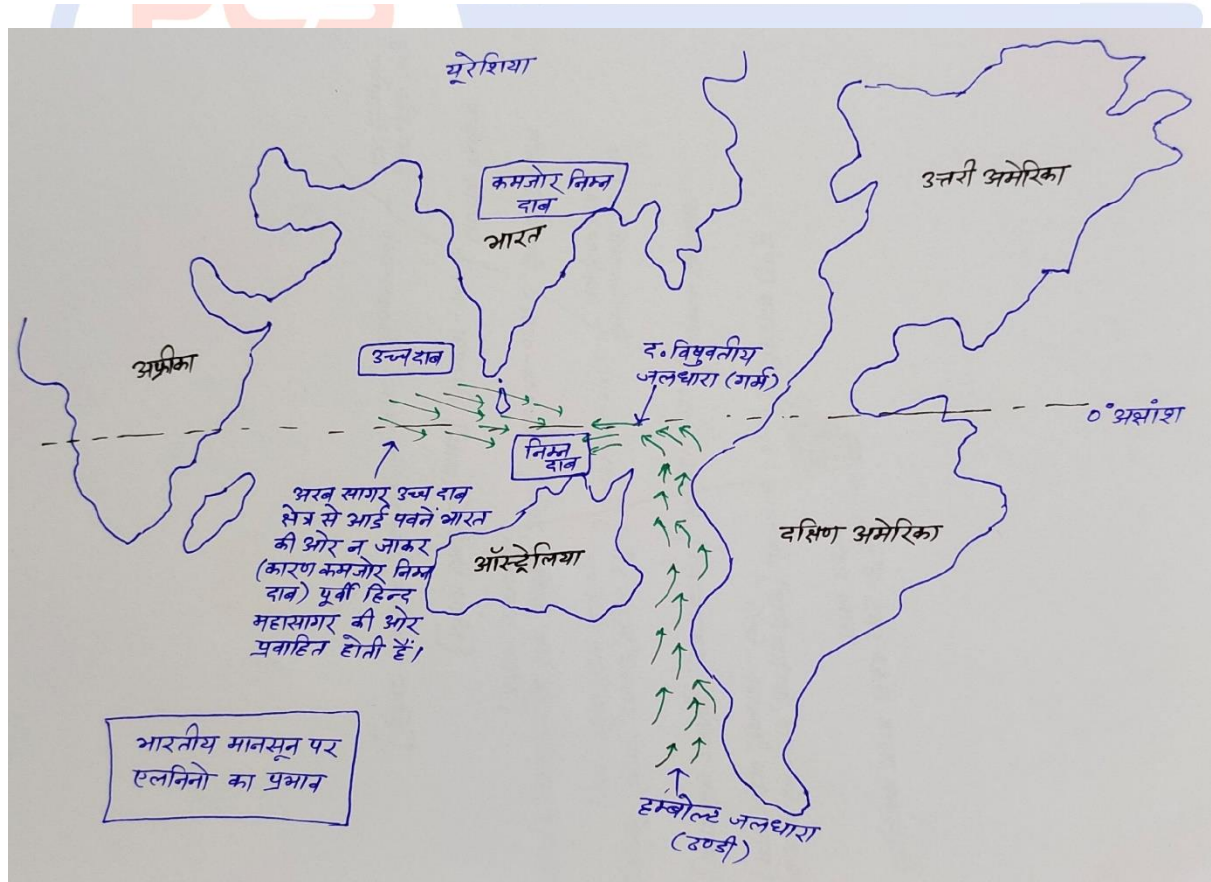 यूरेशिया
कमजोर निम्न
दाब
भारत
उत्तरी अमेरिका
अफ्रीका
उच्च दाब
द० विषुवतीय
जलधारा (गर्म)
0° अक्षांश
निम्न
दाब
अरब सागर उच्च दाब
क्षेत्र से आर्द्र पवनें भारत
की ओर न जाकर
(कारण कमजोर निम्न
दाब) पूर्वी हिन्द
महासागर की ओर
प्रवाहित होती हैं।
ऑस्ट्रेलिया
दक्षिण अमेरिका
भारतीय मानसून पर
एलनिनो का प्रभाव
हम्बोल्ट जलधारा
(ठण्डी)